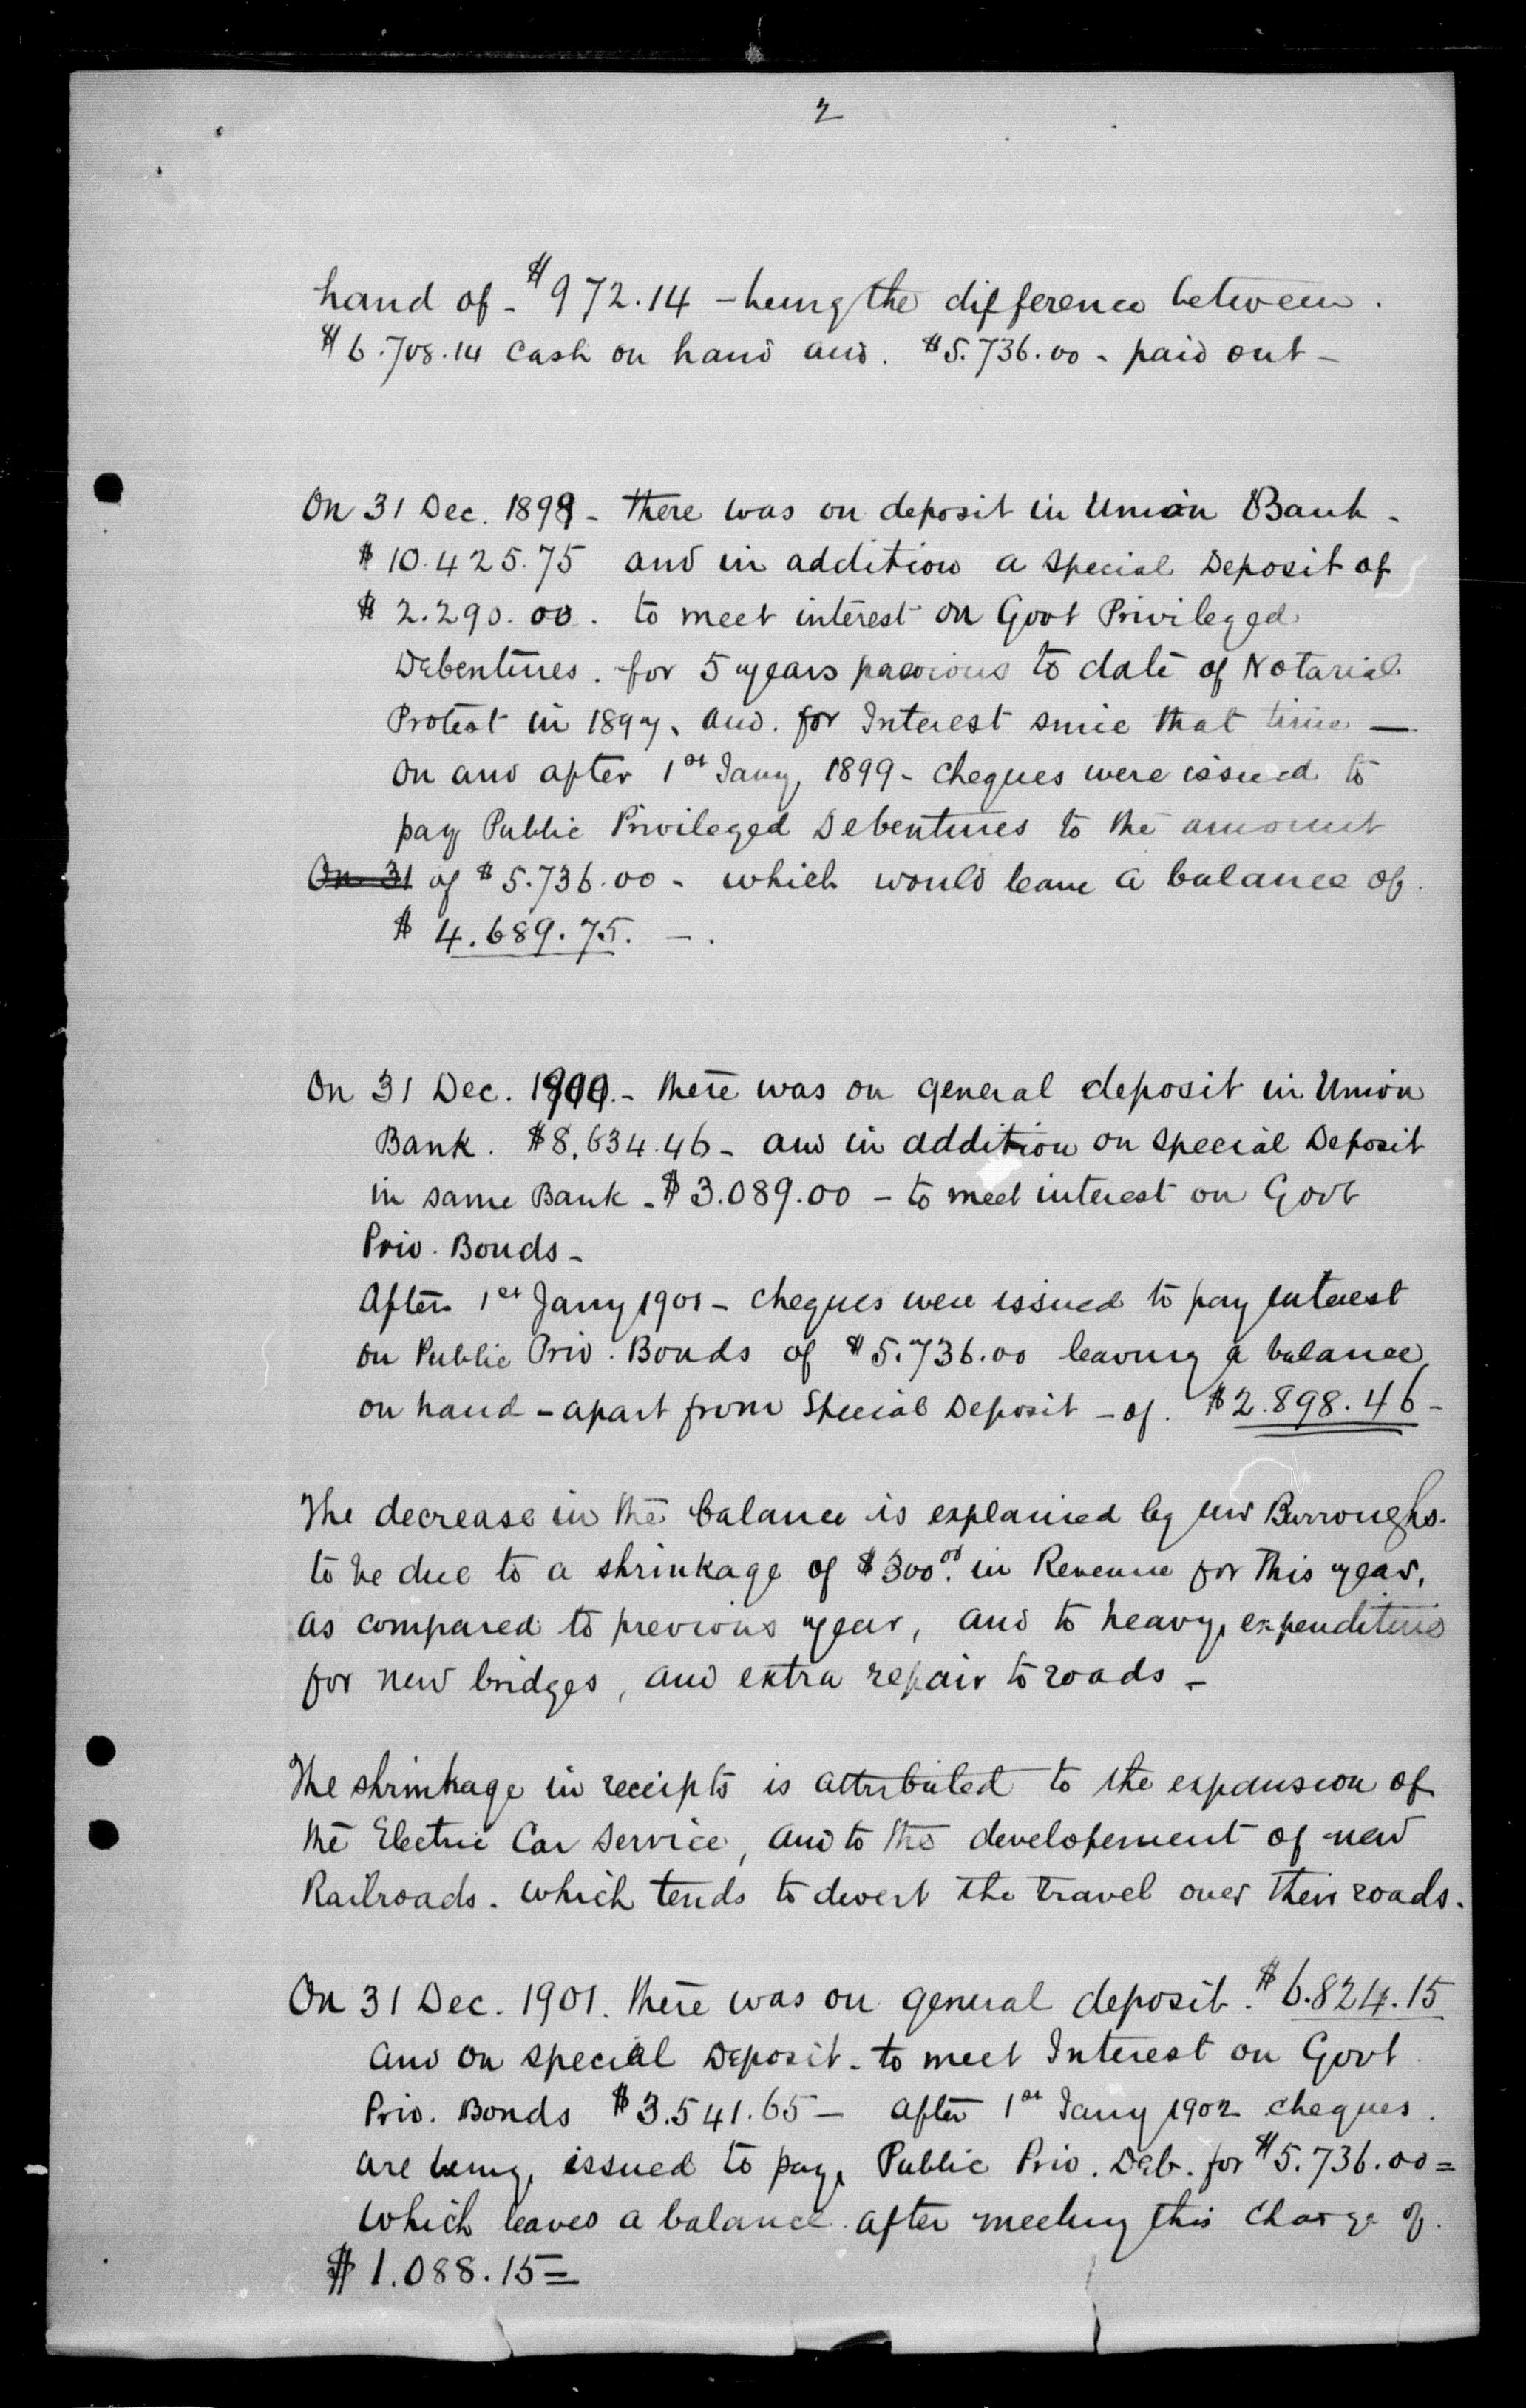 2
hand of - $972.14 - being the difference between.
$6.708.14 Cash on hand and. $5.736.00 - paid out -
On 31 Dec. 1899 - there was on deposit in Union Bank -
$10.425.75 and in addition a special Deposit of
$2.290.00. to meet interest on Govt Privileged
Debentures. for 5 years previous to date of Notarial
Protest in 1897, and. for Interest since that time —
On and after 1st Jany, 1899 - cheques were issued to
pay Public Privileged Debentures to the amount
On 31 of $5.736.00 - which would leave a balance of.
$4.689.75. - .
On 31 Dec. 1900. - there was on general deposit in Union
Bank. $8,634.46 - and in addition on special Deposit
in same Bank - $3.089.00 - to meet interest on Govt
Priv. Bonds -
After 1st Jany 1901 - cheques were issued to pay interest
on Public Priv. Bonds of $5.736.00 leaving a balance
on hand - apart from Special Deposit - of. $2.898.46 -
The decrease in the balance is explained by Mr Burroughs.
to be due to a shrinkage of $300.00 in Revenue for this year,
as compared to previous year, and to heavy expenditure
for new bridges, and extra repair to roads -
The shrinkage in receipts is attributed to the expansion of
the Electric Car Service, and to the developement of new
Railroads. which tends to divert the travel over their roads.
On 31 Dec. 1901. there was on general deposit. $6.824.15
and on special Deposit - to meet Interest on Govt
Priv. Bonds $3.541.65 — after 1st Jany 1902 cheques.
are being issued to pay Public Priv. Deb. for $5.736.00 =
which leaves a balance after meeting this charge of.
$1.088.15 =